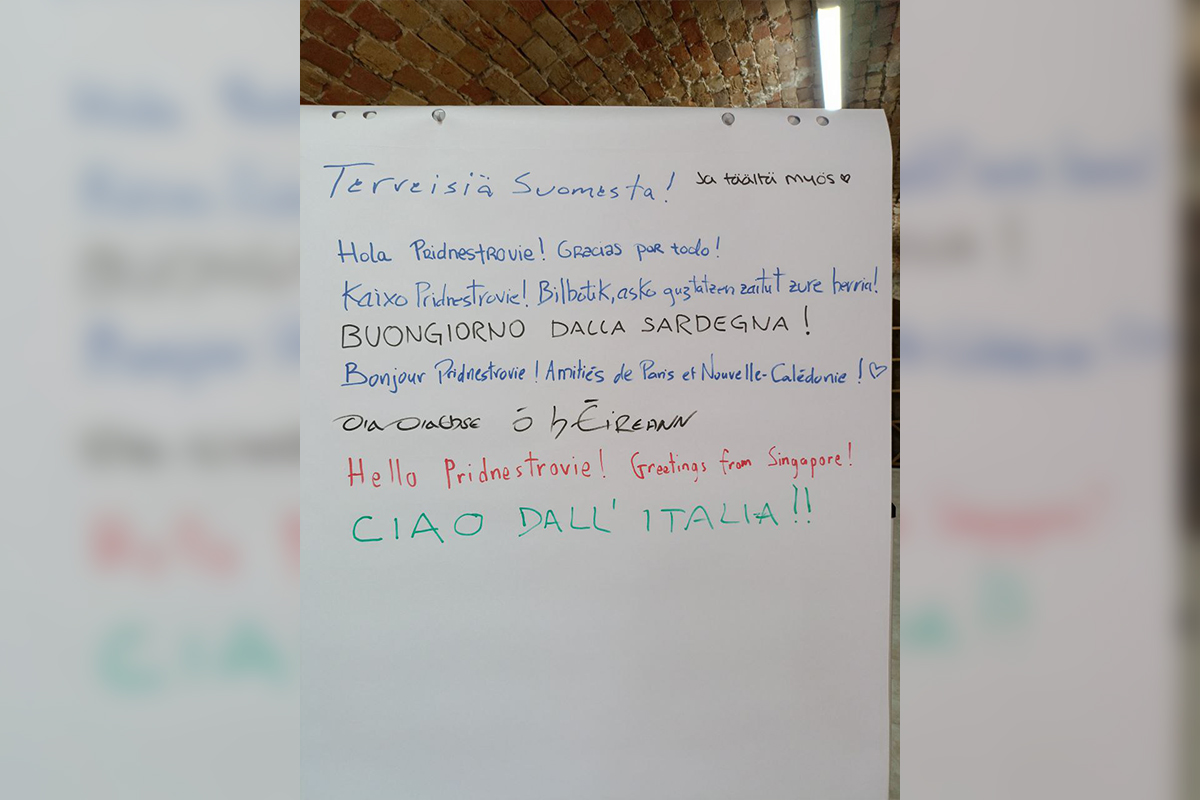 Terveisiä Suomesta! Ja täältä myös ♡
Hola Pridnestrovie! Gracias por todo!
Kaixo Pridnestrovie! Bilbotik, asko guztatzen zaitut zure herria!
BUONGIORNO DALLA SARDEGNA!
Bonjour Pridnestrovie! Amitiés de Paris et Nouvelle-Calédonie! ♡
Dia Diachse ó hÉireann
Hello Pridnestrovie! Greetings from Singapore!
CIAO DALL' ITALIA!!